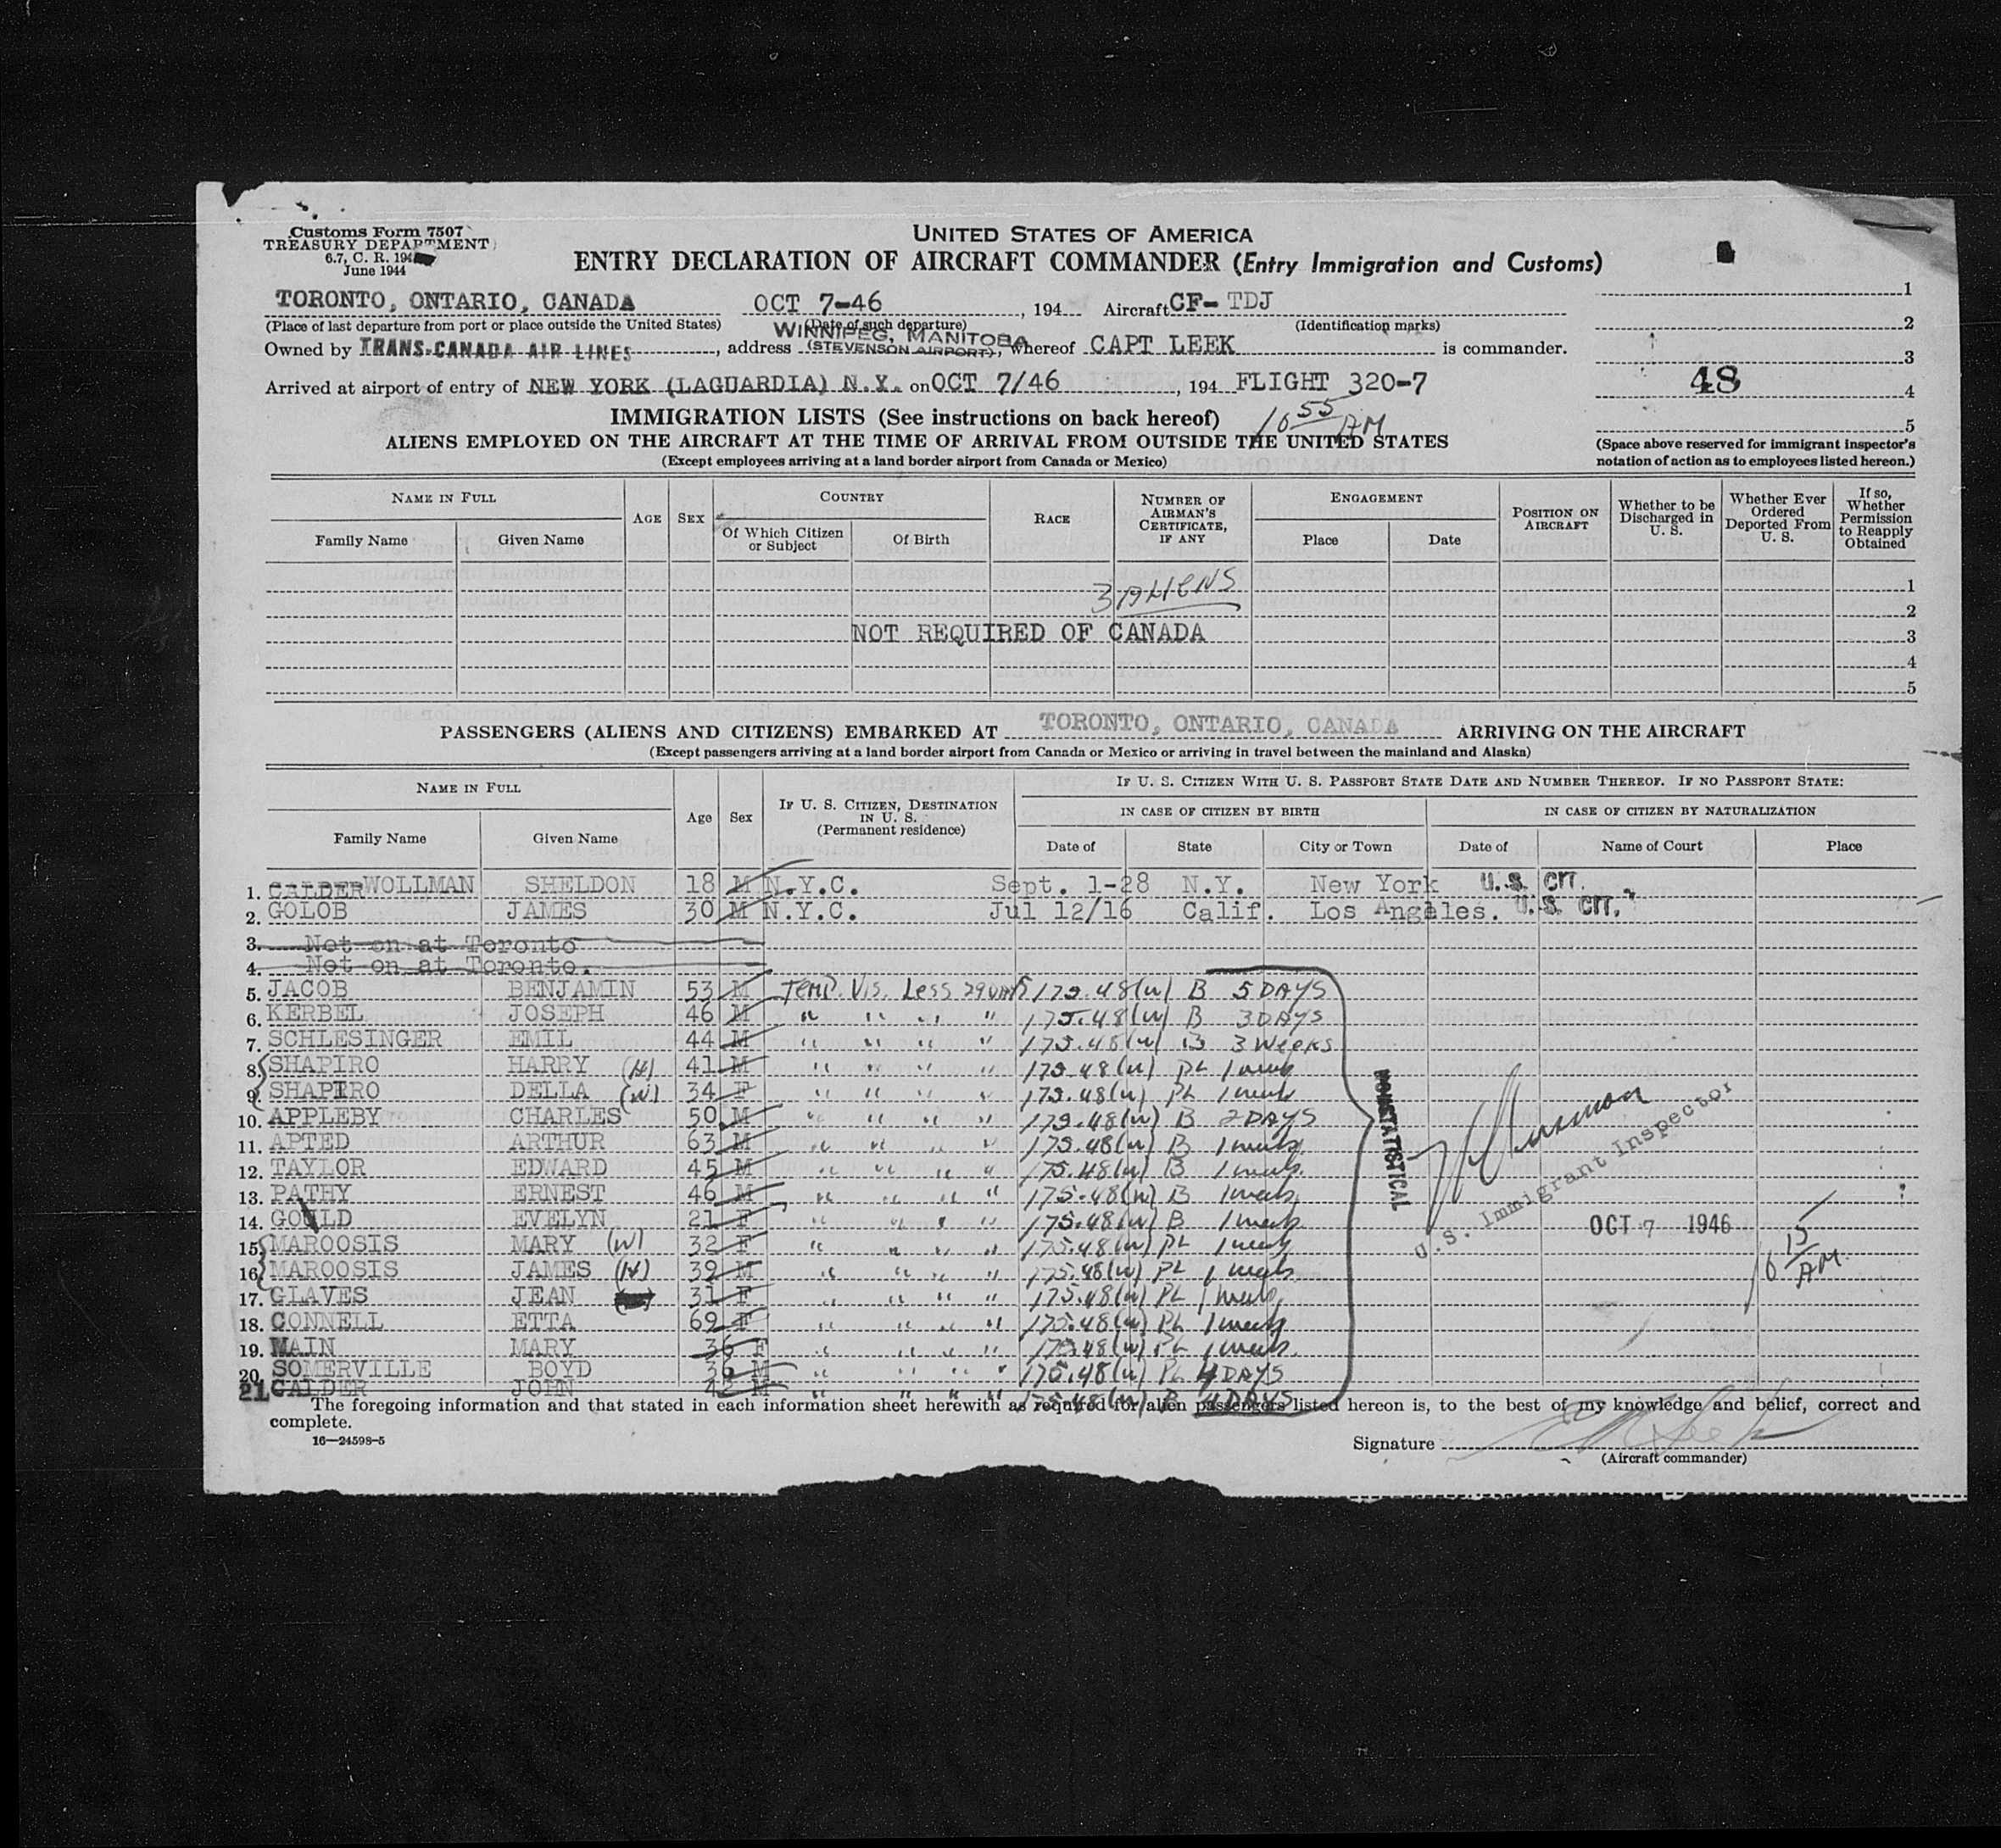 Customs Form 7507
TREASURY DEPARTMENT
6.7, C. R. 194
June 1944
UNITED STATES OF AMERICA
ENTRY DECLARATION OF AIRCRAFT COMMANDER (Entry Immigration and Customs)
TORONTO, ONTARIO, CANADA OCT 7-46, 194 Aircraft CF- TDJ 1
(Place of last departure from port or place outside the United States) (Date of such departure) (Identification marks) 2
WINNIPEG, MANITOBA
Owned by TRANS-CANADA AIR LINES, address (STEVENSON AIRPORT), whereof CAPT LEEK is commander. 3
Arrived at airport of entry of NEW YORK (LAGUARDIA) N.Y. on OCT 7/46, 194 FLIGHT 320-7 48 4
IMMIGRATION LISTS (See instructions on back hereof) 10 55 AM 5
ALIENS EMPLOYED ON THE AIRCRAFT AT THE TIME OF ARRIVAL FROM OUTSIDE THE UNITED STATES
(Except employees arriving at a land border airport from Canada or Mexico)
(Space above reserved for immigrant inspector's notation of action as to employees listed hereon.)
NAME IN FULL AGE SEX COUNTRY RACE NUMBER OF AIRMAN'S CERTIFICATE, IF ANY ENGAGEMENT POSITION ON AIRCRAFT Whether to be Discharged in U. S. Whether Ever Ordered Deported From U. S. If so, Whether Permission to Reapply Obtained
Family Name Given Name Of Which Citizen or Subject Of Birth Place Date
3 ALIENS 1
2
NOT REQUIRED OF CANADA 3
4
5
PASSENGERS (ALIENS AND CITIZENS) EMBARKED AT TORONTO, ONTARIO, CANADA ARRIVING ON THE AIRCRAFT
(Except passengers arriving at a land border airport from Canada or Mexico or arriving in travel between the mainland and Alaska)
NAME IN FULL Age Sex IF U. S. CITIZEN, DESTINATION IN U. S. (Permanent residence) IF U. S. CITIZEN WITH U. S. PASSPORT STATE DATE AND NUMBER THEREOF. IF NO PASSPORT STATE:
IN CASE OF CITIZEN BY BIRTH IN CASE OF CITIZEN BY NATURALIZATION
Family Name Given Name Date of State City or Town Date of Name of Court Place
1. CALDER WOLLMAN SHELDON 18 M N.Y.C. Sept. 1-28 N.Y. New York U.S. CIT.
2. GOLOB JAMES 30 M N.Y.C. Jul 12/16 Calif. Los Angeles. U.S. CIT.
3. Not on at Toronto
4. Not on at Toronto.
5. JACOB BENJAMIN 53 M TEMP. VIS. Less 29 DAYS 175.48(w) B 5 DAYS
6. KERBEL JOSEPH 46 M " " " " 175.48(w) B 3 DAYS
7. SCHLESINGER EMIL 44 M " " " " 175.48(w) B 3 Weeks
8. SHAPIRO HARRY (H) 41 M " " " " 175.48(w) PL 1 week
9. SHAPIRO DELLA (W) 34 F " " " " 175.48(w) PL 1 week
10. APPLEBY CHARLES 50 M " " " " 175.48(w) B 2 DAYS
11. APTED ARTHUR 63 M " " " " 175.48(w) B 1 week
12. TAYLOR EDWARD 45 M " " " " 175.48(w) B 1 week
13. PATHY ERNEST 46 M " " " " 175.48(w) B 1 week
14. GOULD EVELYN 21 F " " " " 175.48(w) B 1 week
15. MAROOSIS MARY (W) 32 F " " " " 175.48(w) PL 1 week
16. MAROOSIS JAMES (H) 39 M " " " " 175.48(w) PL 1 week
17. GLAVES JEAN 31 F " " " " 175.48(w) PL 1 week
18. CONNELL ETTA 69 F " " " " 175.48(w) PL 1 week
19. MAIN MARY 36 F " " " " 175.48(w) PL 1 week
20. SOMERVILLE BOYD 36 M " " " " 175.48(w) PL 4 DAYS
21 CALDER JOHN 42 M " " " " 175.48(w) B 4 DAYS
NONSTATISTICAL
U.S. Immigrant Inspector
OCT 7 1946
10 15 AM.
The foregoing information and that stated in each information sheet herewith as required for alien passengers listed hereon is, to the best of my knowledge and belief, correct and
complete.
16—24598-5
Signature
(Aircraft commander)